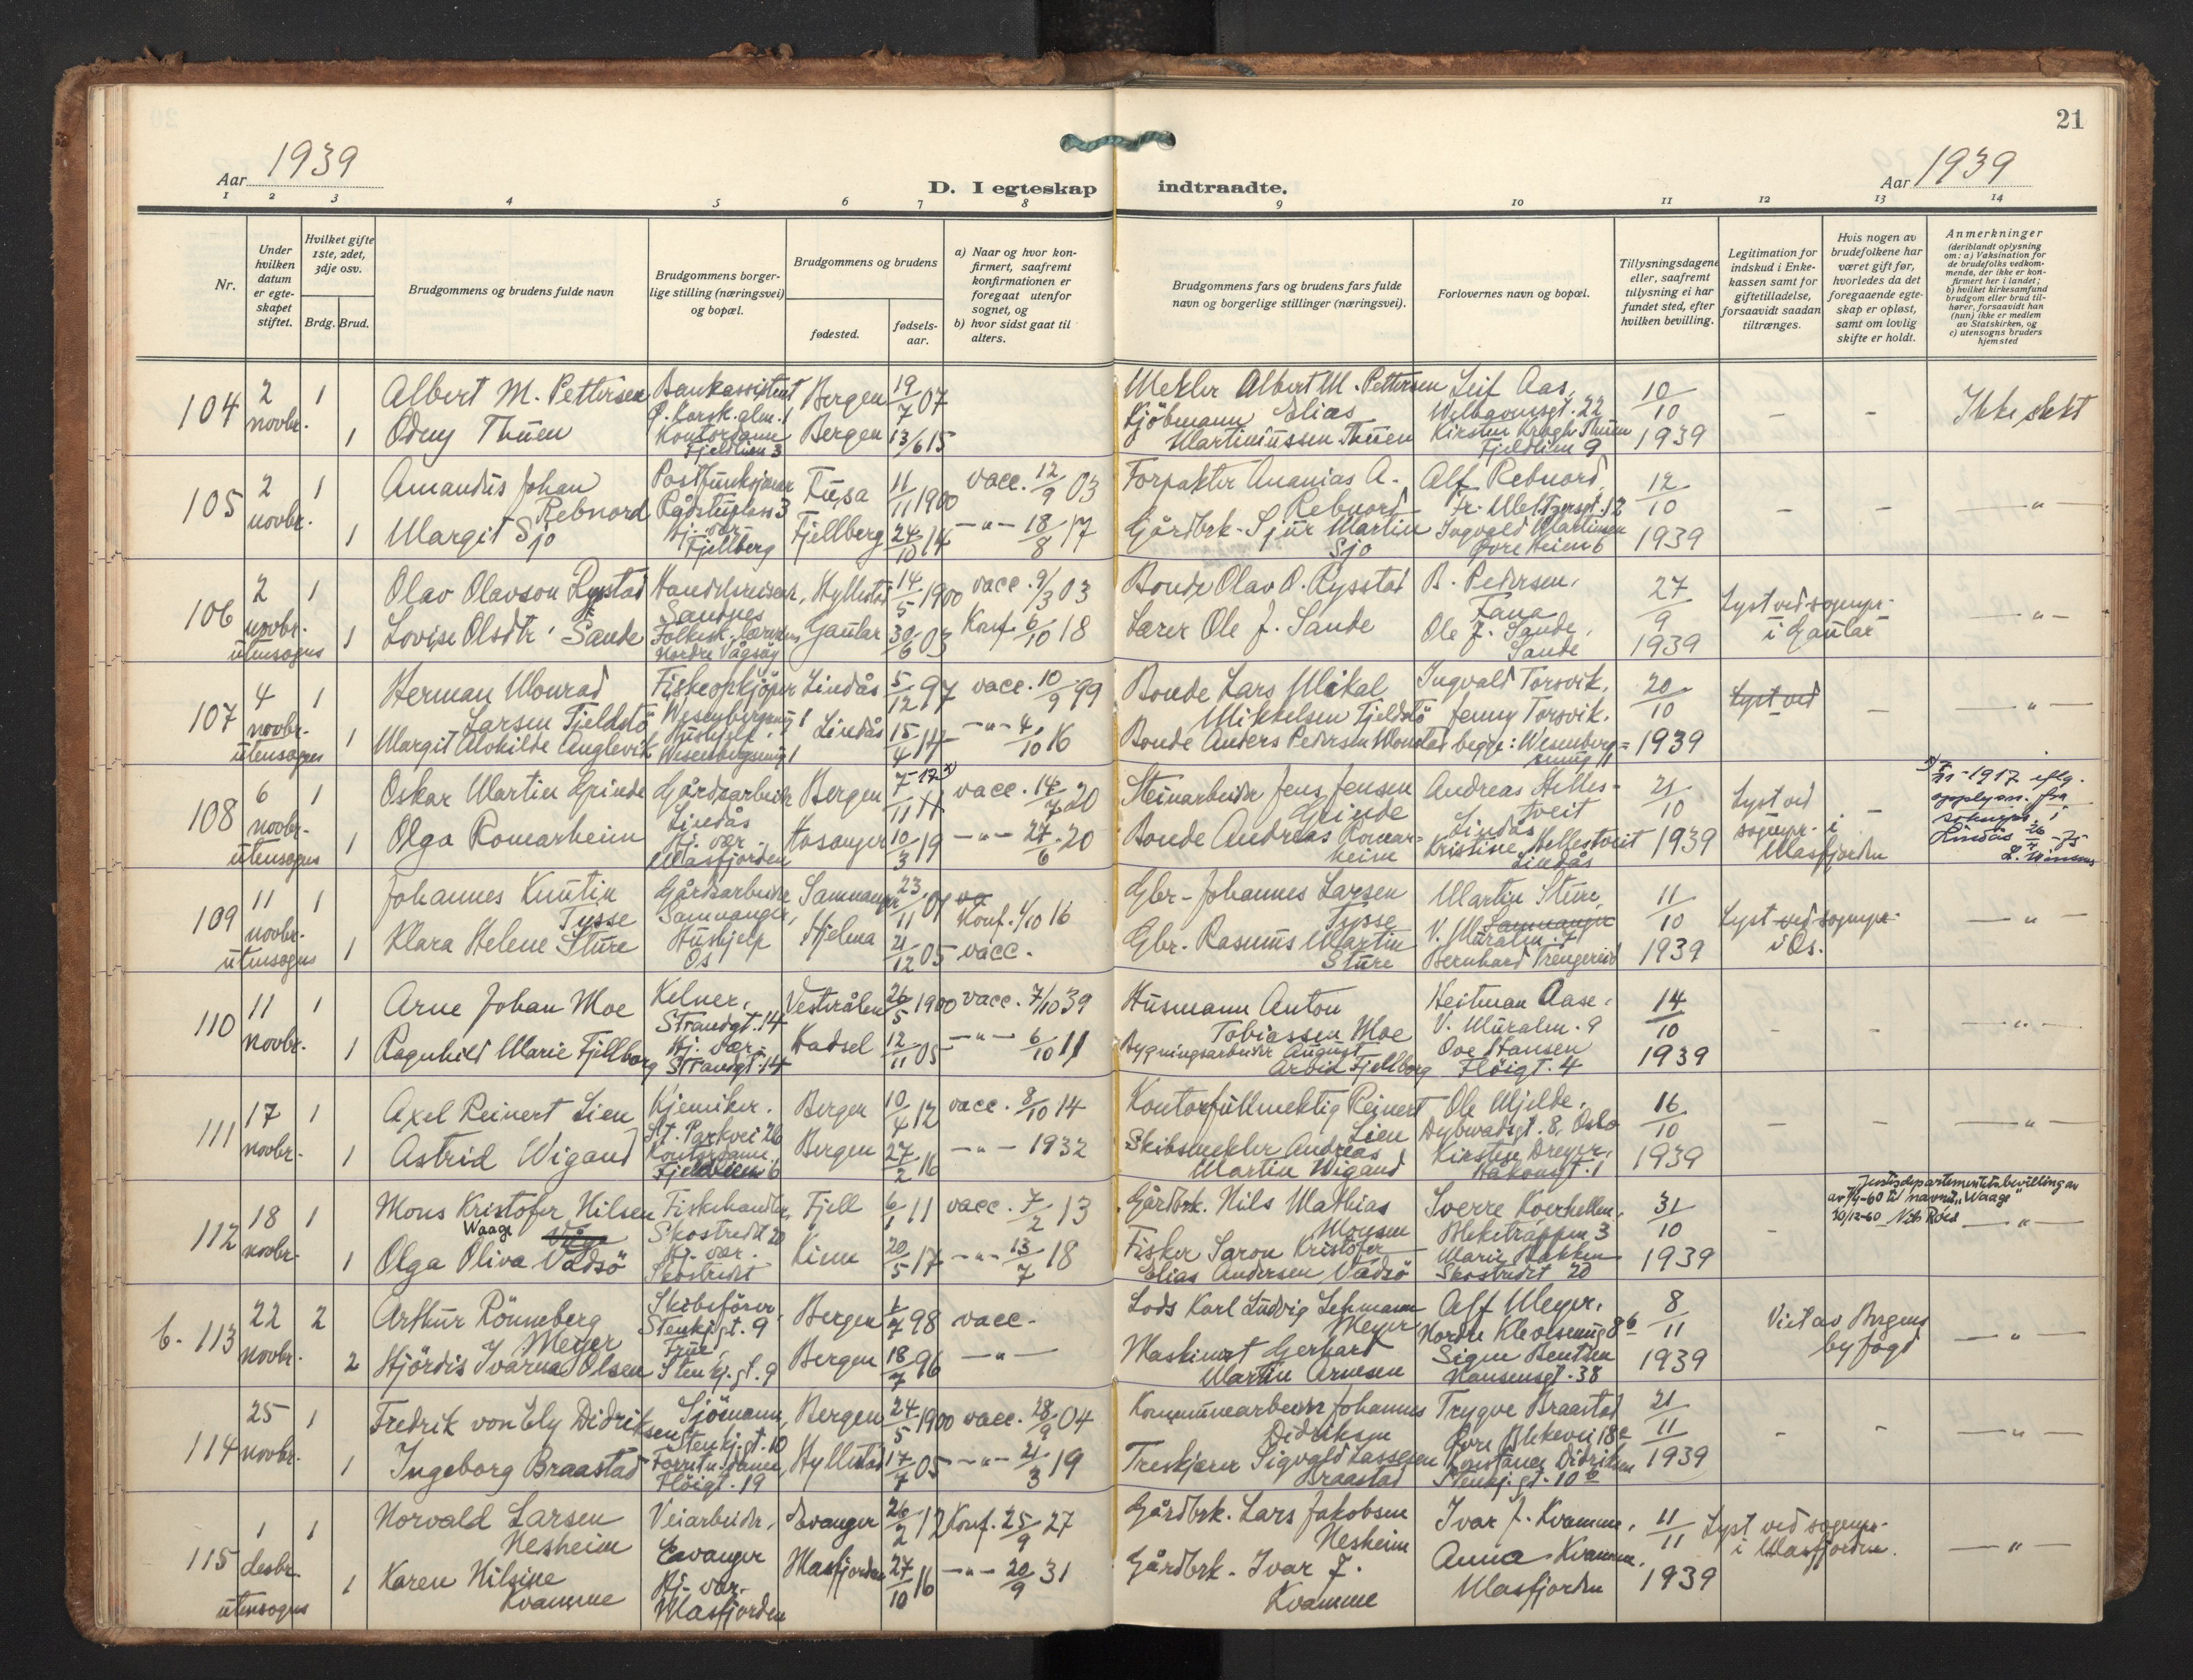 21
Aar 1939
D. I egteskap indtraadte.
Aar 1939
1 2 3 4 5 6 7 8 9 10 11 12 13 14
Nr.
Under hvilken datum er egteskapet stiftet.
Hvilket gifte 1ste, 2det, 3dje osv.
Brdg. Brud.
Brudgommens og brudens fulde navn
Brudgommens borgerlige stilling (næringsvei) og bopæl.
Brudgommens og brudens
fødested.
fødselsaar.
a) Naar og hvor konfirmert, saafremt konfirmationen er foregaat utenfor sognet, og
b) hvor sidst gaat til alters.
Brudgommens fars og brudens fars fulde navn og borgerlige stillinger (næringsvei).
Forlovernes navn og bopæl.
Tillysningsdagene eller, saafremt tillysning ei har fundet sted, efter hvilken bevilling.
Legitimation for indskud i Enkekassen samt for giftetilladelse, forsaavidt saadan tiltrænges.
Hvis nogen av brudefolkene har været gift før, hvorledes da det foregaaende egteskap er opløst, samt om lovlig skifte er holdt.
Anmerkninger
(deriblandt oplysning om: a) Vaksination for de brudefolks vedkommende, der ikke er konfirmert her i landet; b) hvilket kirkesamfund brudgom eller brud tilhører, forsaavidt han (hun) ikke er medlem av Statskirken, og c) utensogns bruders hjemsted
104 2 novbr. 1 Albert M. Pettersen Bankassistent Bergen 19/7 07 Mekler Albert M. Pettersen Leif Aas, Welhavensgt. 22 10/10 1939 - - Ikke slekt
1 Odny Thuen Kontordame Fjeldlien 3 Bergen 13/6 15 Sjöbmann Elias Martiniussen Thuen Kirsten Krogh Thuen Fjeldlien 9
105 2 novbr. 1 Amandus Johan Rebnord Postfunksjonær Rådstuplass 3 Fusa 11/11 1900 vacc. 12/9 03 Forpakter Ananias A. Rebnord Alf Rebnord, Fr. Meltzersgt. 12 12/10 1939 - - — " —
1 Margit Sjo Hj. vær. Fjellberg Fjellberg 24/10 14 — " — 18/8 17 Gårdbrk. Sjur Martin Sjo Ingvald Martinsen Øvre Heien 6
106 2 novbr. utensogns 1 Olav Olavson Rysstad Handelsreisende, Sandnes Hyllestad 14/5 1900 vacc. 9/3 03 Bonde Olav O. Rysstad B. Pedersen, Fana 27/9 1939 Lyst ved sognepr. i Gaular — " —
1 Lovise Olsdtr. Sande Folkesk. lærerinne Nordre Vågsøy Gaular 30/6 03 Konf. 6/10 18 Lærer Ole J. Sande Ole J. Sande, Sande
107 4 novbr. utensogns 1 Herman Monrad Larsen Fjeldstö Fiskeopkjöper Wesenbergsmug 1 Lindås 5/12 97 vacc. 10/9 99 Bonde Lars Mikal Mikkelsen Fjeldstö Ingvald Torsvik, Jenny Torsvik. 20/10 1939 Lyst ved - — " —
1 Margit Alvhilde Anglevik Hushjelp, Wesenbergsmug 1 Lindås 15/4 14 — " — 4/10 16 Bonde Anders Pedersen Monstad begge: Wesenbergsmug 11
108 6 novbr. utensogns 1 Oskar Martin Grinde Gårdsarbeider Lindås Bergen 7/11 11 17 x) vacc. 14/7 20 Steinarbeider Jens Jensen Grinde Andreas Hellestveit Lindås 21/10 1939 Lyst ved sognepr. i Masfjorden - x) 7/11-1917 iflg. opplysn. fra sokneps. i Lindås 26/ -75
1 Olga Romarheim Hj. vær. Masfjorden Hosanger 10/3 19 — " — 27/6 20 Bonde Andreas Romarheim Kristine Hellestveit Lindås
109 11 novbr. utensogns 1 Johannes Knutin Tysse Gårdsarbeider Samnanger, Samnanger 23/11 01 va Konf. 1/10 16 Gbr. Johannes Larsen Tysse Martin Sture, Samnanger V. Muralm. 7 11/10 1939 Lyst ved sognepr. i Os. — " —
1 Klara Helene Sture Hushjelp Os Hjelma 21/12 05 vacc. Gbr. Rasmus Martin Sture Bernhard Trengereid
110 11 novbr. 1 Arne Johan Moe Kelner, Strandgt. 14 Vesterålen 26/5 1900 vacc. 7/10 39 Husmann Anton Tobiassen Moe Heitman Aase, V. Muralm. 9 14/10 1939 - - — " —
1 Ragnhild Marie Fjellborg Hj. vær. Strandgt. 14 Hadsel 12/11 05 — " — 6/10 11 Bygningsarbeider August Arvid Fjellborg Ove Hansen Flöigt. 4
111 17 novbr. 1 Axel Reinert Lien Kjemiker. St. Parkvei 26 Bergen 10/4 12 vacc. 8/10 14 Kontorfullmektig Reinert Lien Ole Mjelde, Dybwadsgt. 8, Oslo 16/10 1939 - - — " —
1 Astrid Wigand Kontordame Fjeldlien 6 Bergen 27/2 16 — " — 1932 Skibsmekler Andreas Martin Wigand Kirsten Dreyer, Håkonsgt. 1
112 18 novbr. 1 Mons Kristofer Nilsen Waage Våge Fiskehandler, Skostredet 20 Fjell 6/1 11 vacc. 7/2 13 Gårdbrk. Nils Mathias Monsen Sverre Koerhellen, Bleketrappen 3 31/10 1939 - Justisdepartementets bevilling av av 7/9-60 til navnet "Waage" 30/12-60 — " —
1 Olga Oliva Vadsö Hj. vær. Skostredet Kinn 20/5 17 — " — 13/7 18 Fisker Saron Kristofer Elias Andersen Vadsö Marie Bakken Skostredet 20
b. 113 22 novbr. 2 Arthur Rönneberg Meyer Skibsförer Stenkj.gt. 9 Bergen 1/7 98 vacc. Lods Karl Ludvig Lehmann Meyer Alf Meyer, Nordre Kleivesmug 8 b 8/11 1939 Viet av Bergens byfogd — " —
2 Hjördis Ivarna Olsen Frue, Stenkj.gt. 9 Bergen 18/7 96 — " — Maskinist Gerhard Martin Arnesen Signe Bentsen Hansensgt. 38
114 25 novbr. 1 Fredrik von Ely Didriksen Sjömann, Stenkj.gt. 10 Bergen 24/5 1900 vacc. 28/9 04 Kommunearbeider Johannes Didriksen Trygve Braastad Øvre Blekevei 18 c 21/11 1939 - - — " —
1 Ingeborg Braastad Forretn.dame, Flöigt. 19 Hyllestad 17/7 05 — " — 21/3 19 Treskjærer Sigvald Lassesen Braastad Konstance Didriksen Stenkj.gt. 10 b
115 1 desbr. utensogns 1 Norvald Larsen Nesheim Veiarbeider, Evanger Evanger 26/2 12 Konf. 25/9 27 Gårdbrk. Lars Jakobsen Nesheim Ivar J. Kvamme, 11/11 1939 Lyst ved sognepr. i Masfjorden. — " —
1 Karen Nilsine Kvamme Hj. vær. Masfjorden Masfjorden 27/10 16 — " — 20/9 31 Gårdbrk. Ivar J. Kvamme Anna Kvamme, Masfjorden